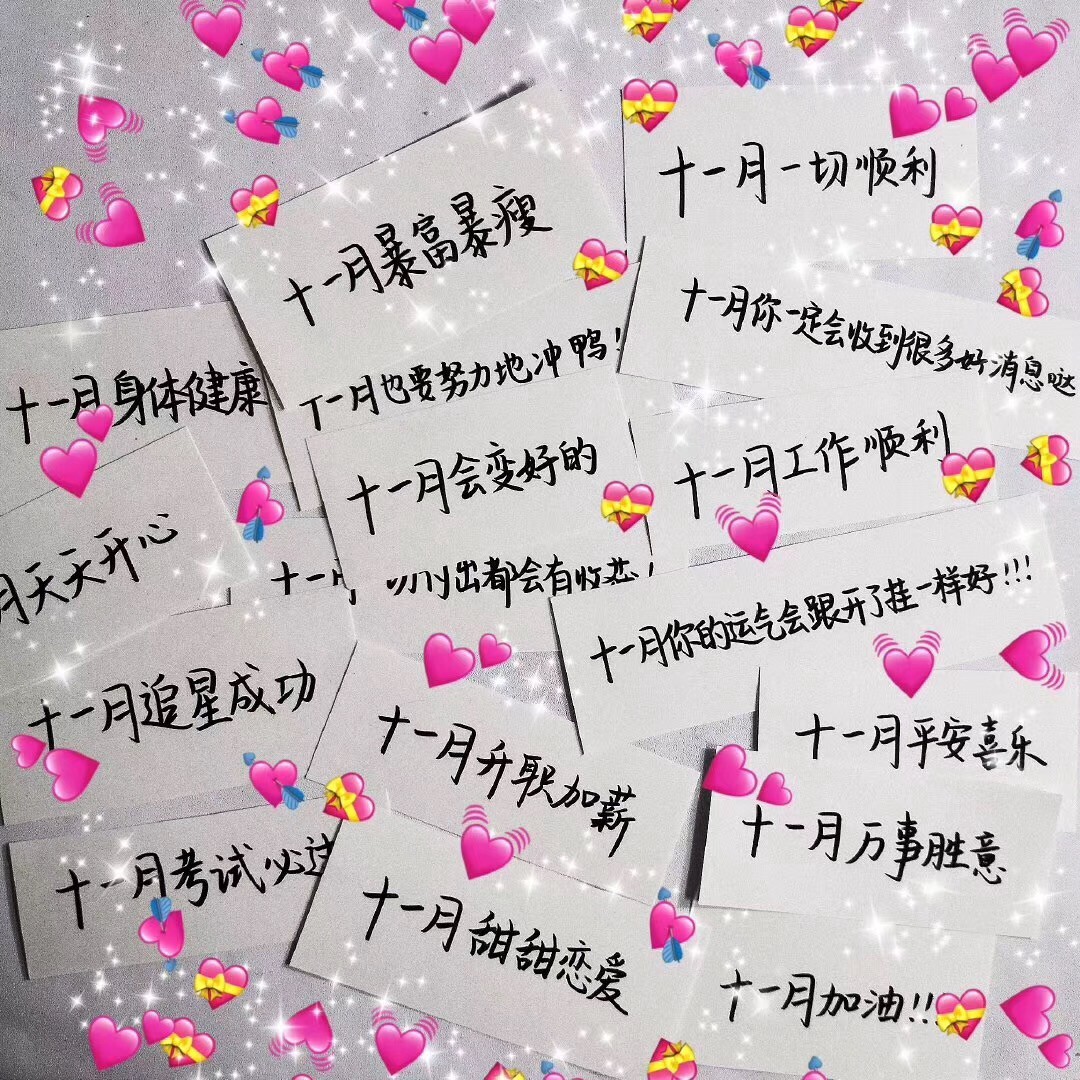 十一月一切顺利
十一月暴富暴瘦
十一月你一定会收到很多好消息哒
十一月也要努力地冲鸭！
十一月身体健康
十一月会变好的
十一月工作顺利
月天天开心
十一
出都会有收
十一月你的运气会跟开了挂一样好!!!
十一月追星成功
十一月升职加薪
十一月平安喜乐
十一月万事胜意
十一月考试必过
十一月甜甜恋爱
十一月加油!!!